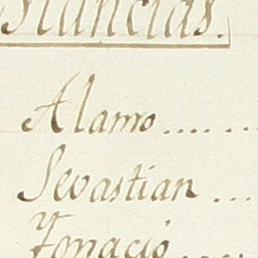 stancias.
Alamo.......
Sevastian ...
Ygnacio .....